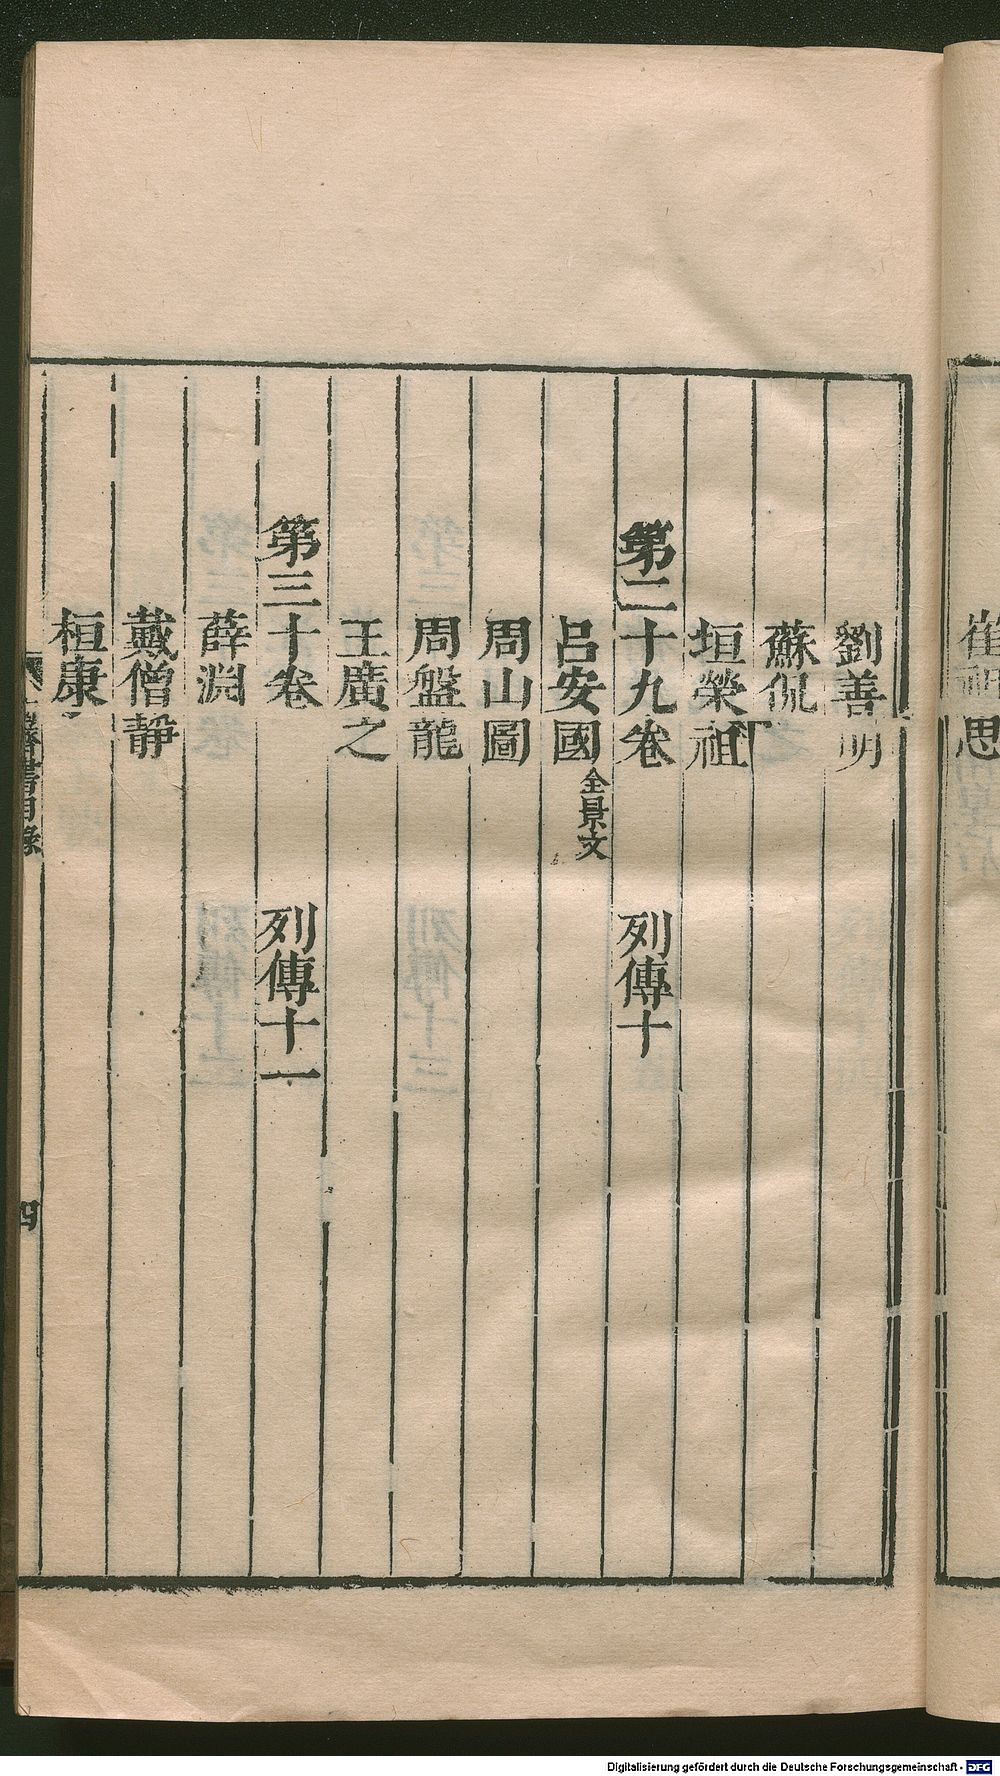 崔祖思
劉善明
蘇侃
垣榮祖
第二十九卷 列傳十
呂安國 全景文
周山圖
周盤龍
王廣之
第三十卷 列傳十一
薛淵
戴僧靜
桓康
齊書目錄 四
Digitalisierung gefördert durch die Deutsche Forschungsgemeinschaft - DFG